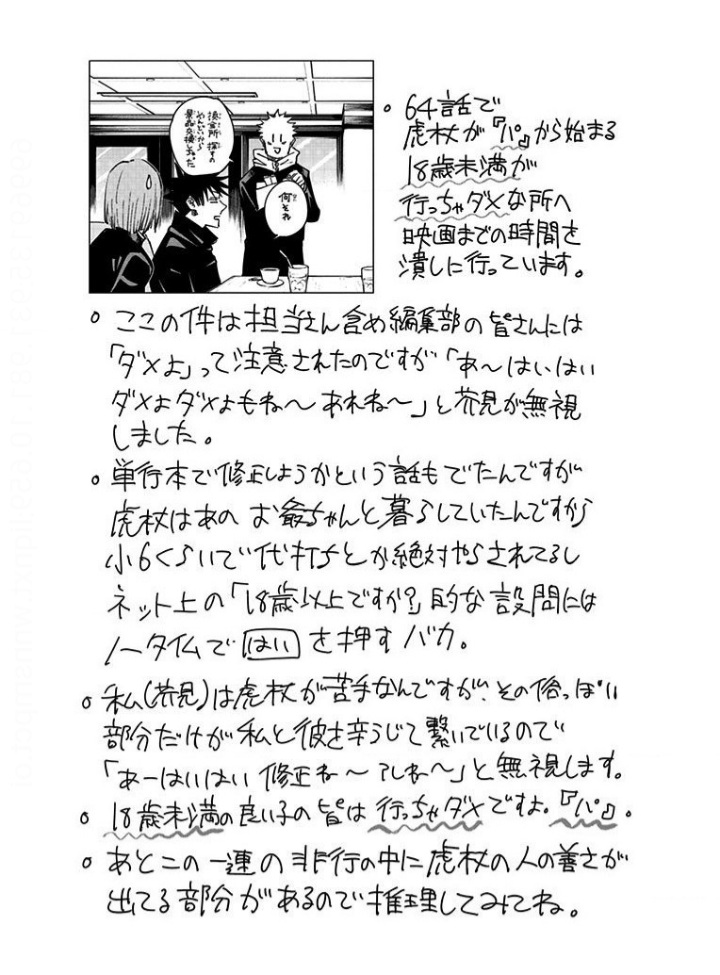 換金所 探すの
めんどいから
景品交換しちゃった
何それ
。64話で
虎杖が『パ』から始まる
18歳未満が
行っちゃダメな所へ
映画までの時間を
潰しに行っています。
。ここの件は担当さん含め編集部の皆さんには
「ダメよ」って注意されたのですが「あ〜はいはい
ダメよダメよもね〜あれね〜」と芥見が無視
しました。
。単行本で修正しようかという話もでたんですが
虎杖はあの お爺ちゃんと暮らしていたんですから
小6くらいで代打ちとか絶対やらされてるし
ネット上の「18歳以上ですか?」的な設問には
ノータイムで はい を押すバカ。
。私(芥見)は虎杖が苦手なんですが、その俗っぽい
部分だけが私と彼を辛うじて繋いでいるので
「あーはいはい 修正ね〜アレね〜」と無視します。
。18歳未満の良い子の皆は行っちゃダメですよ。『パ』。
。あとこの一連の非行の中に虎杖の人の善さが
出てる部分があるので推理してみてね。